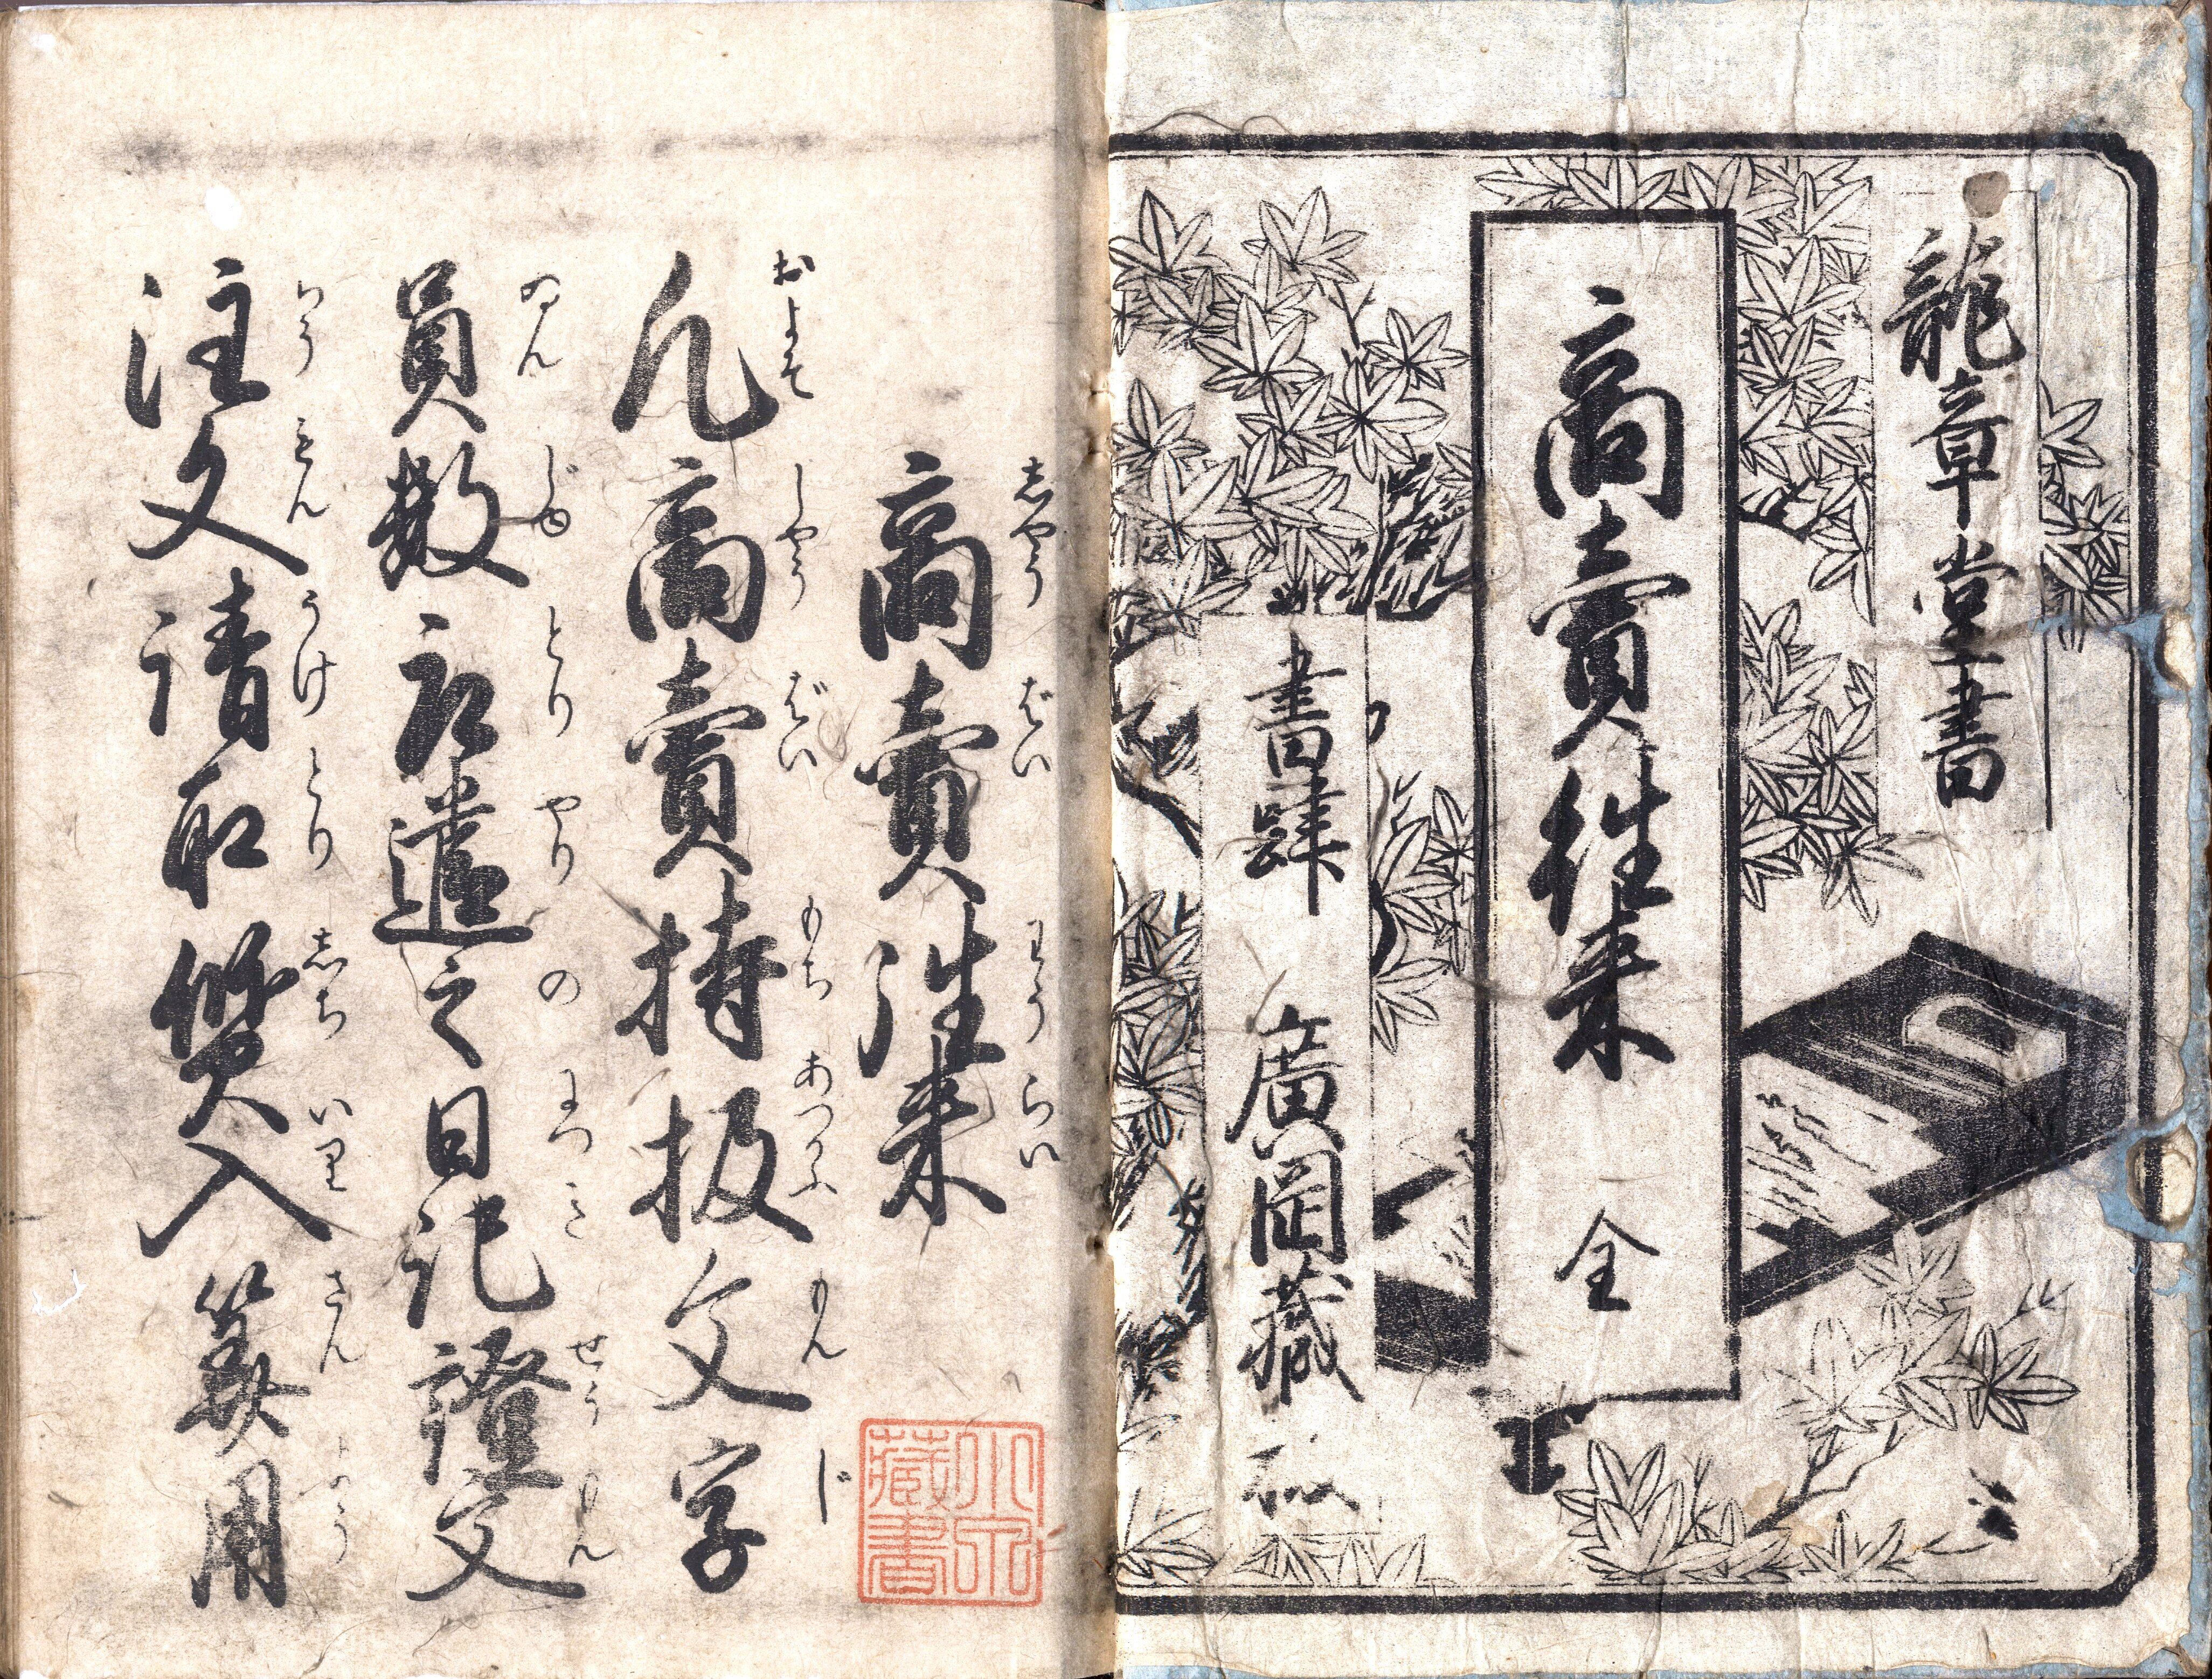 龍章堂書
商賣往来 全
書肆 廣岡藏
志やう ばい わう らい
商賣往来
およそ しやう ばい もち あつかふ もん じ
凡商賣持扱文字
ゐん じゆ とり やり の につ き せう もん
員数取遣之日記證文
ちう もん うけ とり 志ち いり さん よう
注文請取質入算用
藏書